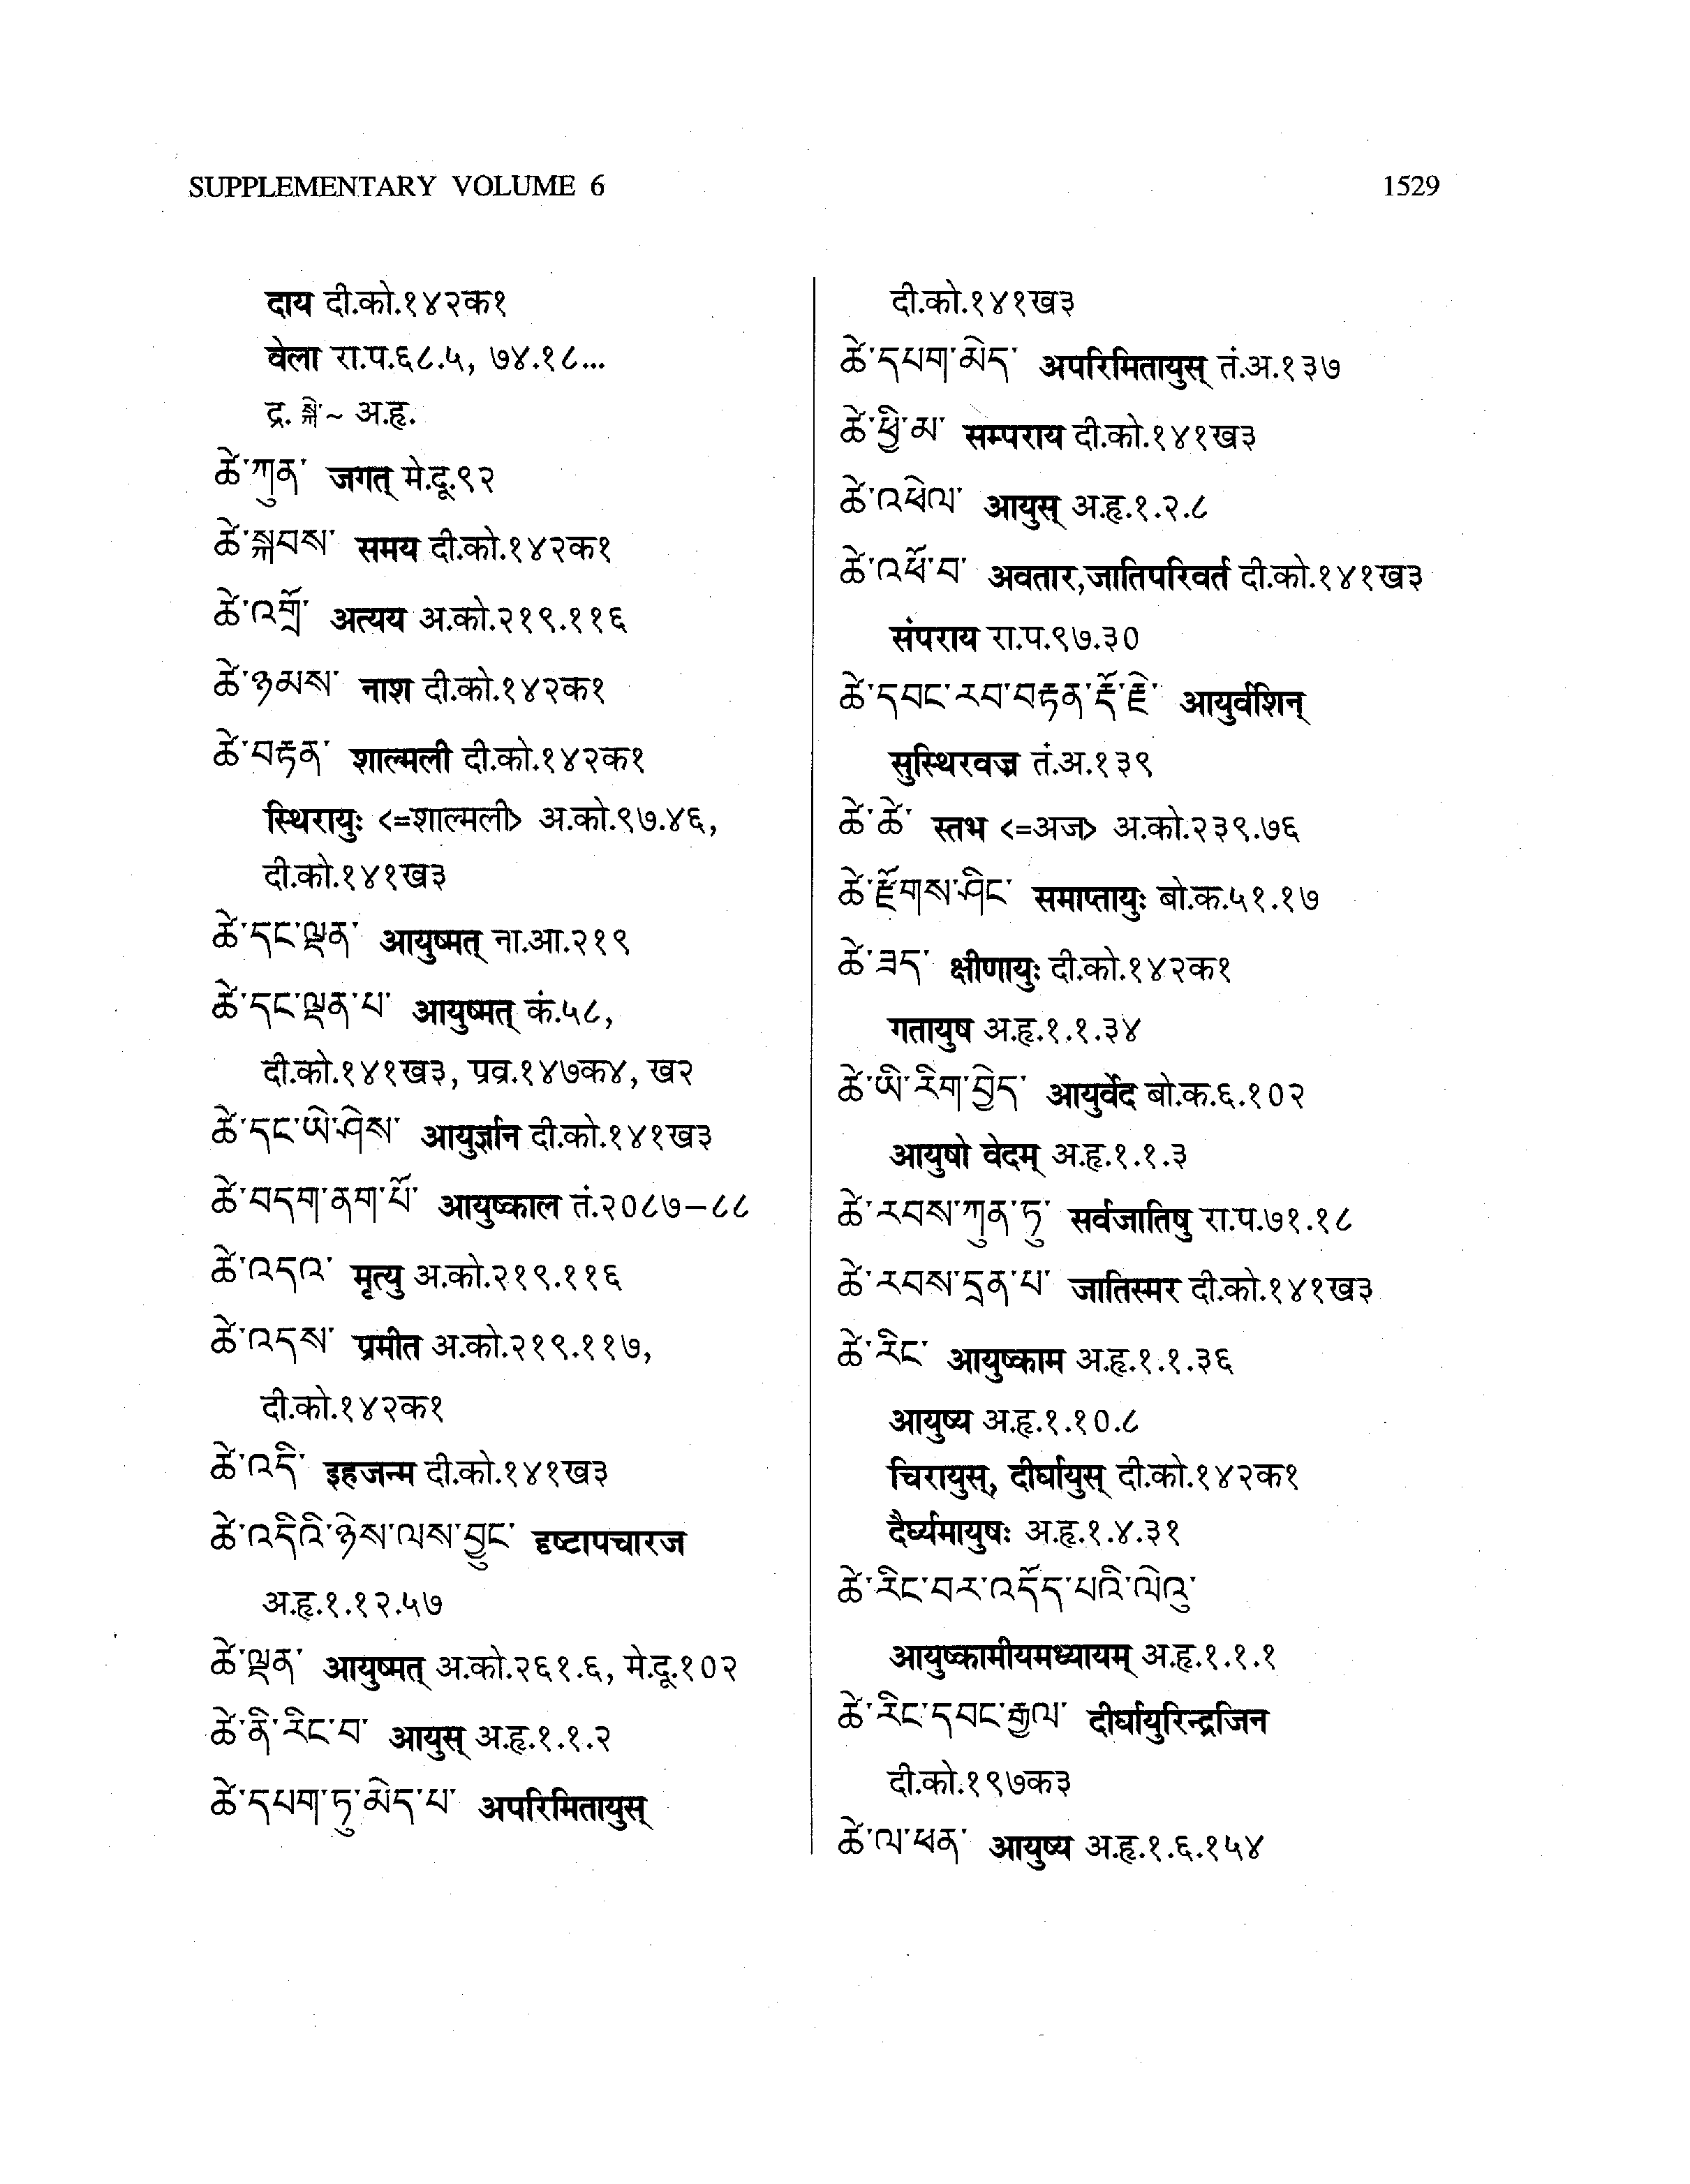 SUPPLEMENTARY VOLUME 6
1529
दाय दी.को.१४२क१
वेला रा.प.६८.५, ७४.१८...
द्र. སྐྱེ་~ अ.हृ.
ཚེ་ཀུན་ जगत् मे.दू.९२
ཚེ་སྐབས་ समय दी.को.१४२क१
ཚེ་འགྲོ་ अत्यय अ.को.२१९.११६
ཚེ་ཉམས་ नाश दी.को.१४२क१
ཚེ་བརྟན་ शाल्मली दी.को.१४२क१
स्थिरायुः <=शाल्मली> अ.को.९७.४६,
दी.को.१४१ख३
ཚེ་དང་ལྡན་ आयुष्मत् ना.आ.२१९
ཚེ་དང་ལྡན་པ་ आयुष्मत् कं.५८,
दी.को.१४१ख३, प्रव्र.१४७क४, ख२
ཚེ་དང་ཡེ་ཤེས་ आयुर्ज्ञान दी.को.१४१ख३
ཚེ་བདག་ནག་པོ་ आयुष्काल तं.२०८७–८८
ཚེ་འདའ་ मृत्यु अ.को.२१९.११६
ཚེ་འདས་ प्रमीत अ.को.२१९.११७,
दी.को.१४२क१
ཚེ་འདི་ इहजन्म दी.को.१४१ख३
ཚེ་འདིའི་ཉེས་ལས་བྱུང་ दृष्टापचारज
अ.हृ.१.१२.५७
ཚེ་ལྡན་ आयुष्मत् अ.को.२६१.६, मे.दू.१०२
ཚེ་ནི་རིང་བ་ आयुस् अ.हृ.१.१.२
ཚེ་དཔག་ཏུ་མེད་པ་ अपरिमितायुस्
दी.को.१४१ख३
ཚེ་དཔག་མེད་ अपरिमितायुस् तं.अ.१३७
ཚེ་ཕྱི་མ་ सम्पराय दी.को.१४१ख३
ཚེ་འཕེལ་ आयुस् अ.हृ.१.२.८
ཚེ་འཕོ་བ་ अवतार,जातिपरिवर्त दी.को.१४१ख३
संपराय रा.प.९७.३०
ཚེ་དབང་རབ་བརྟན་རྡོ་རྗེ་ आयुर्वशिन्
सुस्थिरवज्र तं.अ.१३९
ཚེ་ཚེ་ स्तभ <=अज> अ.को.२३९.७६
ཚེ་རྫོགས་ཤིང་ समाप्तायुः बो.क.५१.१७
ཚེ་ཟད་ क्षीणायुः दी.को.१४२क१
गतायुष अ.हृ.१.१.३४
ཚེ་ཡི་རིག་བྱེད་ आयुर्वेद बो.क.६.१०२
आयुषो वेदम् अ.हृ.१.१.३
ཚེ་རབས་ཀུན་ཏུ་ सर्वजातिषु रा.प.७१.१८
ཚེ་རབས་དྲན་པ་ जातिस्मर दी.को.१४१ख३
ཚེ་རིང་ आयुष्काम अ.हृ.१.१.३६
आयुष्य अ.हृ.१.१०.८
चिरायुस्, दीर्घायुस् दी.को.१४२क१
दैर्घ्यमायुषः अ.हृ.१.४.३१
ཚེ་རིང་བར་འདོད་པའི་ལེའུ་
आयुष्कामीयमध्यायम् अ.हृ.१.१.१
ཚེ་རིང་དབང་རྒྱལ་ दीर्घायुरिन्द्रजिन
दी.को.१९७क३
ཚེ་ལ་ཕན་ आयुष्य अ.हृ.१.६.१५४